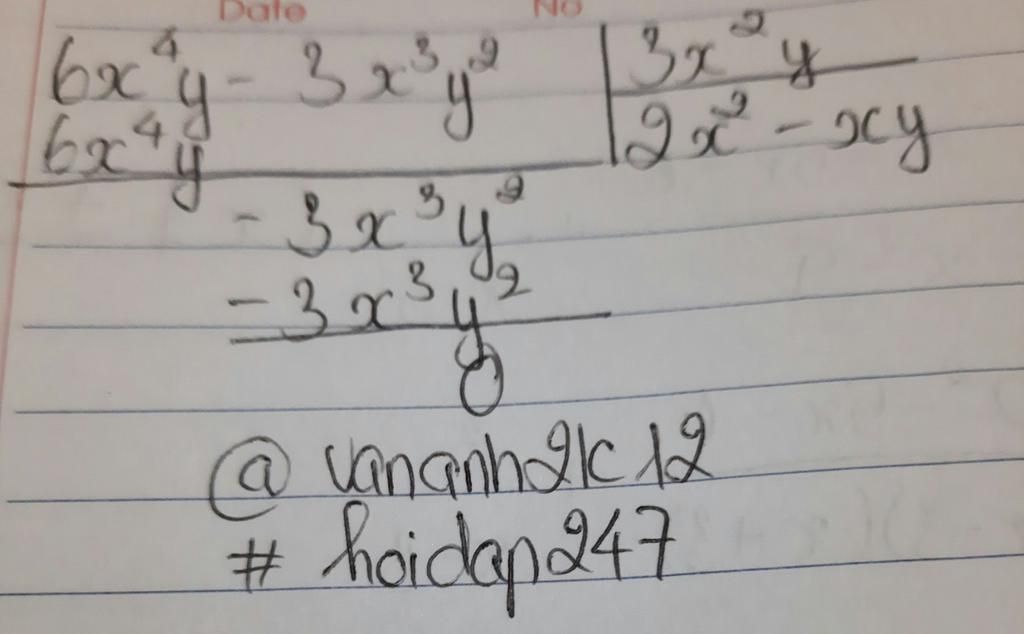 Date No
6x⁴y - 3x³y² | 3x²y
6x⁴y | 2x² - xy
- 3x³y²
- 3x³y²
0
@ vananh2k12
# hoidap247